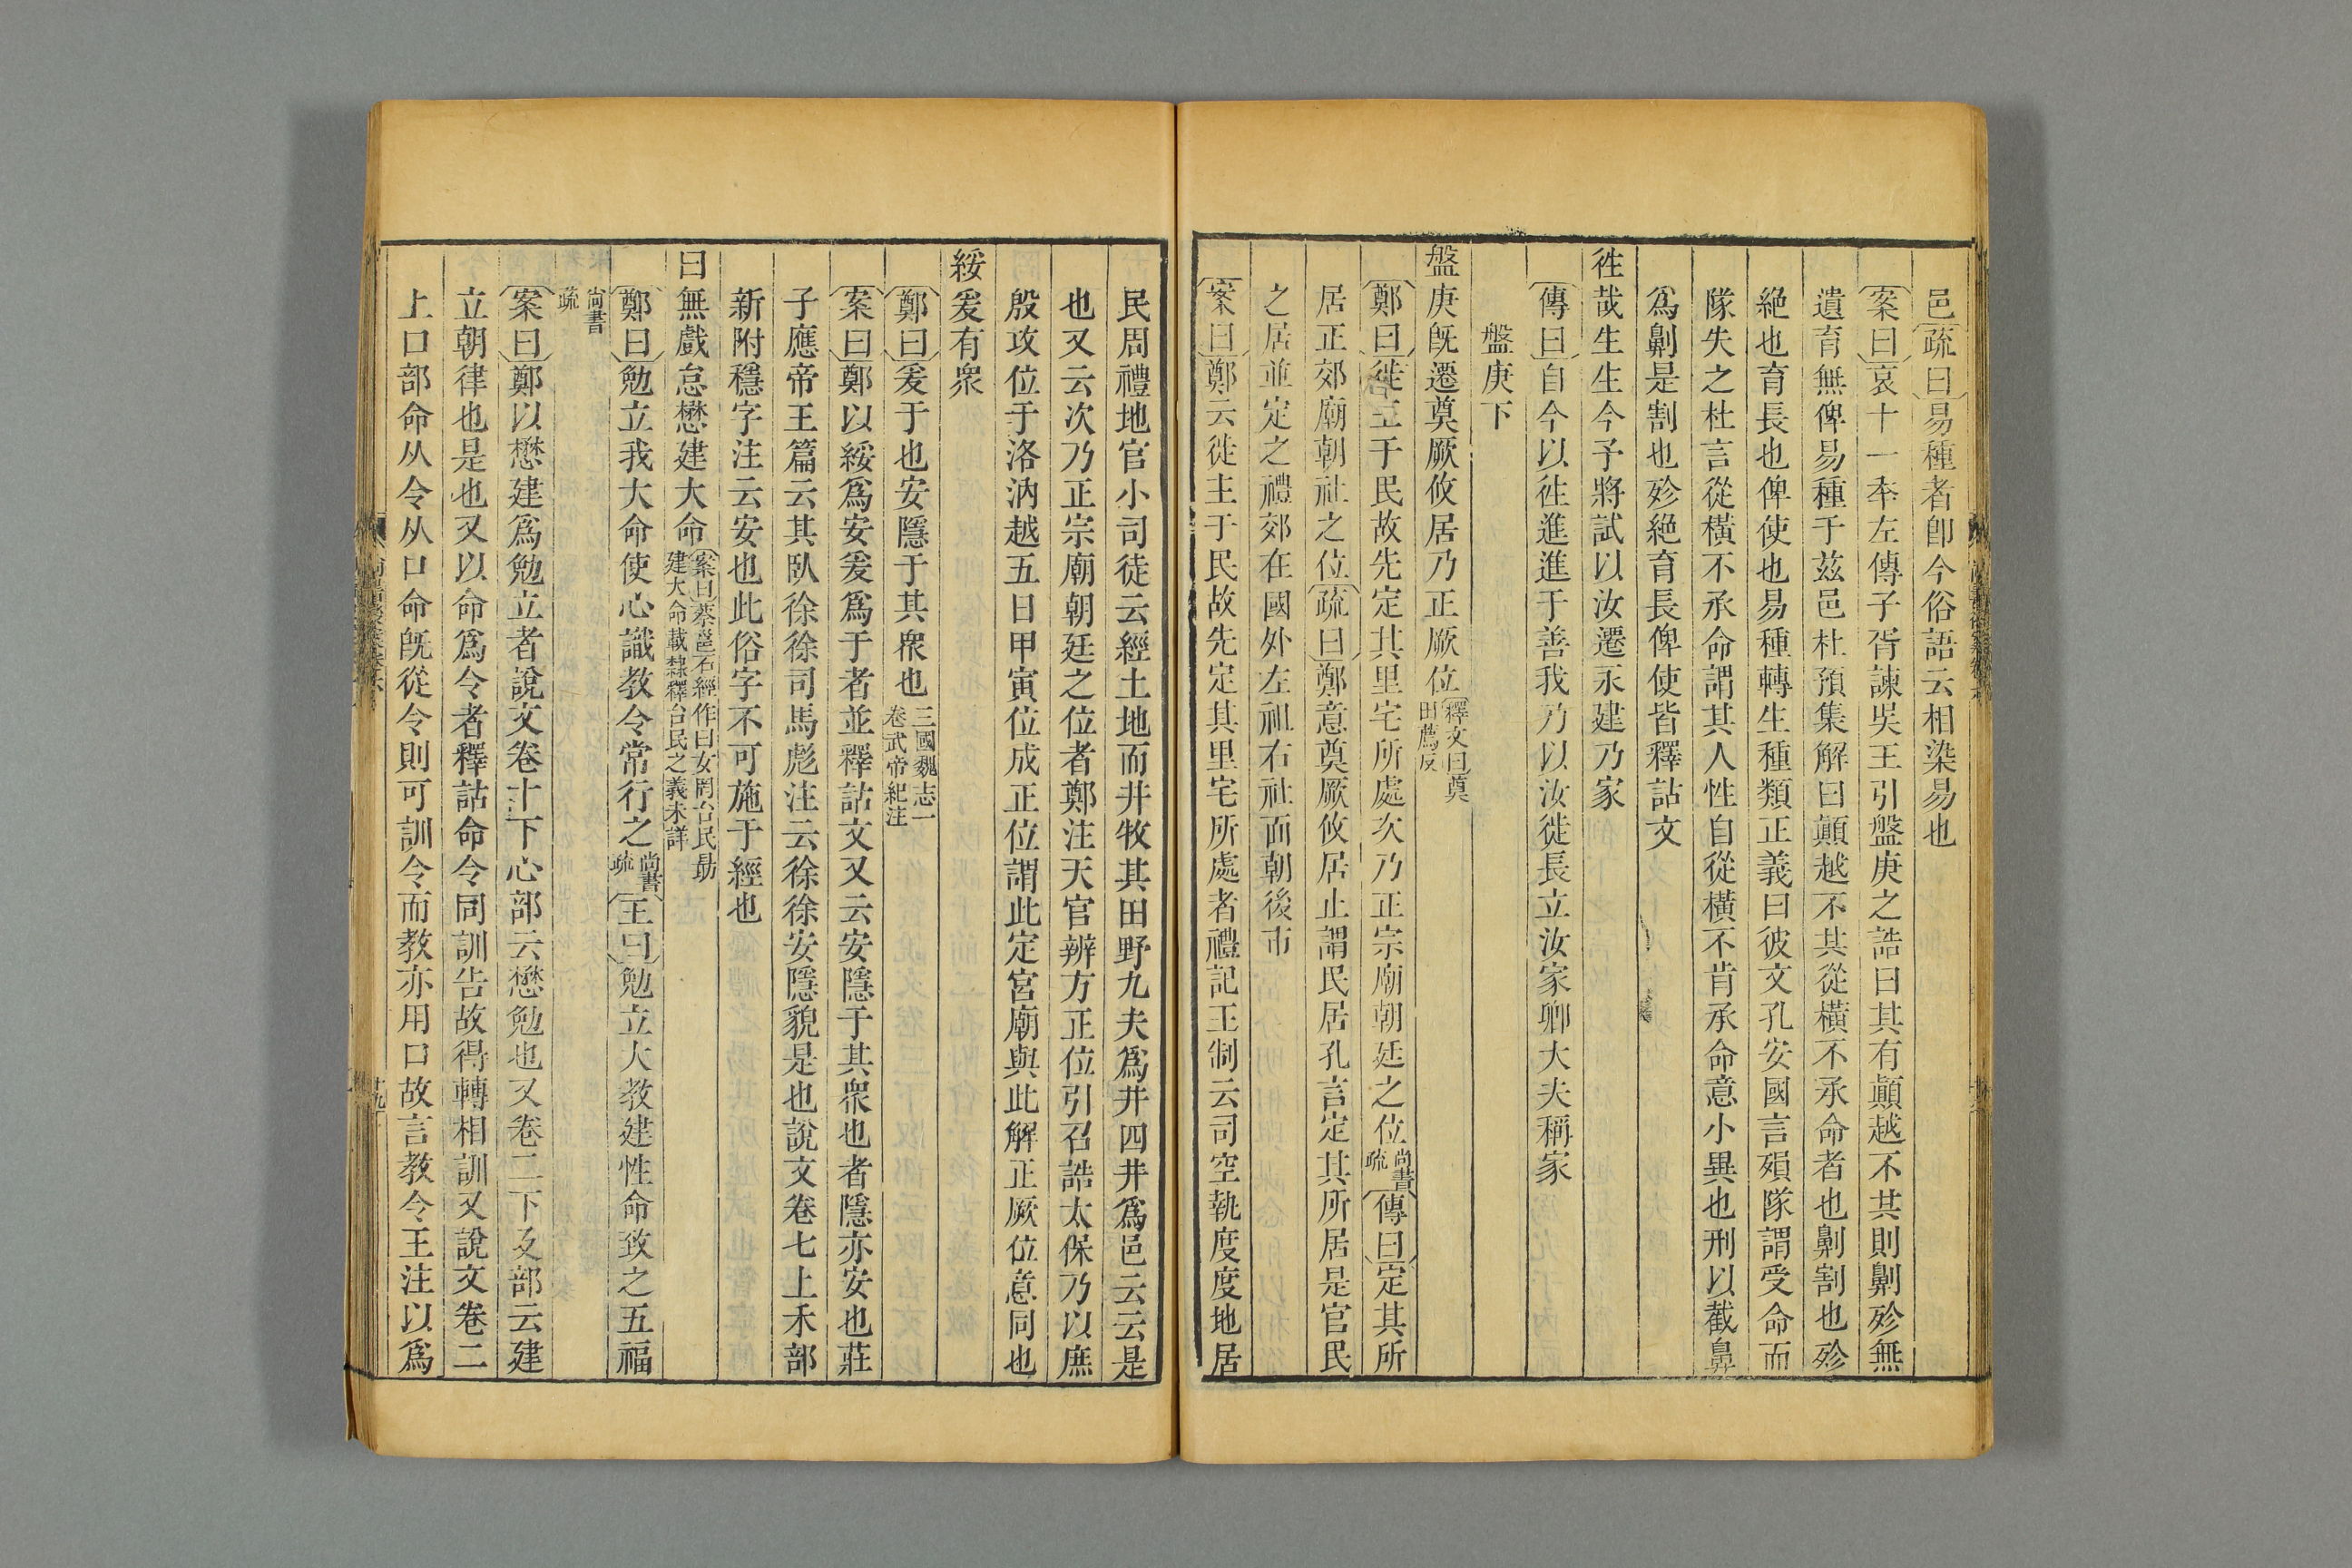 邑疏曰易種者卽今俗語云相染易也
案曰哀十一年左傳子胥諫吳王引盤庚之誥曰其有顚越不其則劓殄無
遺育無俾易種于茲邑杜預集解曰顚越不其從橫不承命者也劓割也殄
絕也育長也俾使也易種轉生種類正義曰彼文孔安國言殞隊謂受命而
隊失之杜言從橫不承命謂其人性自從橫不肯承命意小異也刑以截鼻
爲劓是割也殄絕育長俾使皆釋詁文
徃哉生生今予將試以汝遷永建乃家
傳曰自今以徃進進于善我乃以汝徙長立汝家卿大夫稱家
盤庚下
盤庚旣遷奠厥攸居乃正厥位釋文曰奠田薦反
鄭曰徙主于民故先定其里宅所處次乃正宗廟朝廷之位尙書疏傳曰定其所
居正郊廟朝社之位疏曰鄭意奠厥攸居止謂民居孔言定其所居是官民
之居並定之禮郊在國外左祖右社面朝後市
案曰鄭云徙主于民故先定其里宅所處者禮記王制云司空執度度地居
民周禮地官小司徒云經土地而井牧其田野九夫爲井四井爲邑云云是
也又云次乃正宗廟朝廷之位者鄭注天官辨方正位引召誥太保乃以庶
殷攻位于洛汭越五日甲寅位成正位謂此定宮廟與此解正厥位意同也
綏爰有衆
鄭曰爰于也安隱于其衆也三國魏志一卷武帝紀注
案曰鄭以綏爲安爰爲于者並釋詁文又云安隱于其衆也者隱亦安也莊
子應帝王篇云其臥徐徐司馬彪注云徐徐安隱貌是也說文卷七上禾部
新附穩字注云安也此俗字不可施于經也
曰無戲怠懋建大命案曰蔡邕石經作曰女罔台民勛建大命載隸釋台民之義未詳
鄭曰勉立我大命使心識教令常行之尙書疏王曰勉立大教建性命致之五福
尙書疏
案曰鄭以懋建爲勉立者說文卷十下心部云懋勉也又卷二下廴部云建
立朝律也是也又以命爲令者釋詁命令同訓告故得轉相訓又說文卷二
上口部命从令从口命旣從令則可訓令而教亦用口故言教令王注以爲